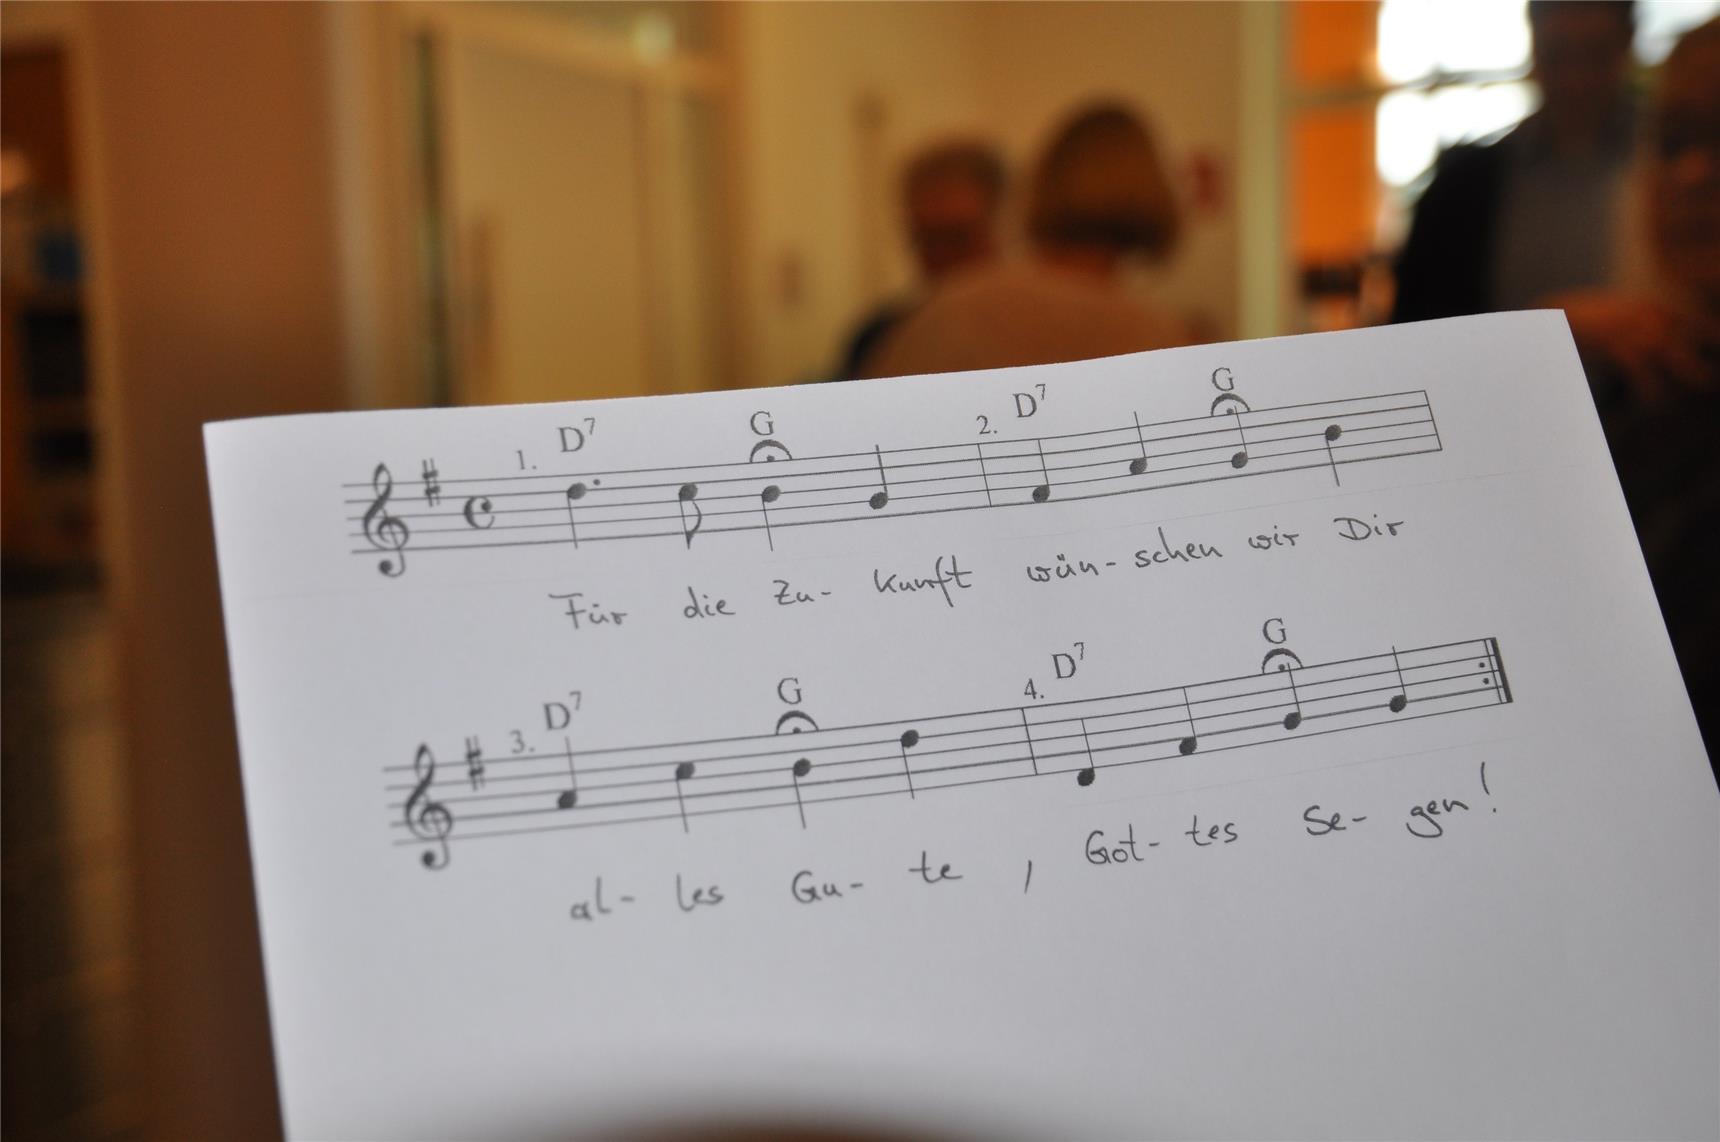 1. D7 G 2. D7 G
Für die Zu- kunft wün- schen wir Dir
3. D7 G 4. D7 G
al- les Gu- te , Got- tes Se- gen!